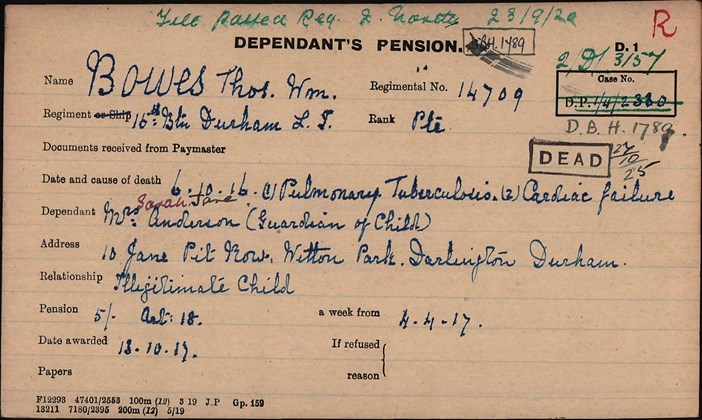 File passed Reg. 2. North 23/9/20
R
DEPENDANT'S PENSION.
D.B.H. 1789
D. 1
2/D/3157
Name BOWES Thos. Wm.
Regimental No. 14709
Case No.
D.P. 1/4/2330
Regiment or Ship 16th Btn Durham L. I.
Rank Pte
D.B.H. 1789.
Documents received from Paymaster
DEAD
27/10/25
Date and cause of death 6.10.16. (1) Pulmonary Tuberculosis. (2) Cardiac failure
Sarah Jane
Dependant Mrs. Anderson (Guardian of Child)
Address 10 Jane Pit Row, Witton Park. Darlington Durham.
Relationship Illegitimate Child
Pension 5/- Art: 18. a week from 4.4.17.
Date awarded 13.10.17. If refused
Papers reason
F12293 47401/2553 100m (12) 3 19 J.P Gp. 159
13211 7180/2395 200m (12) 5/19